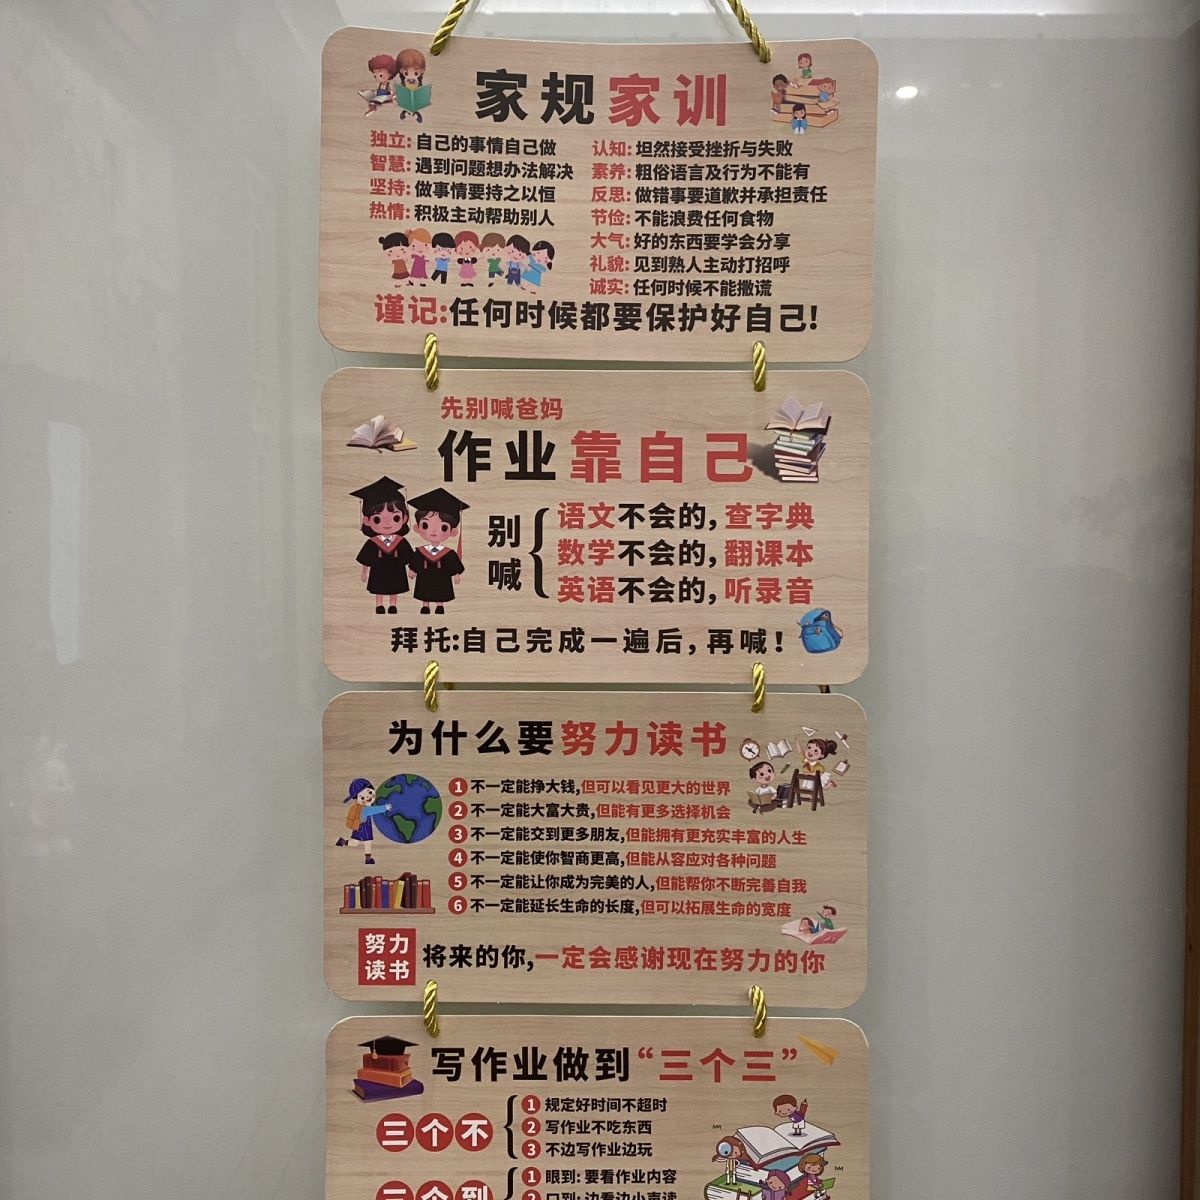 家规家训
独立:自己的事情自己做
智慧:遇到问题想办法解决
坚持:做事情要持之以恒
热情:积极主动帮助别人
认知:坦然接受挫折与失败
素养:粗俗语言及行为不能有
反思:做错事要道歉并承担责任
节俭:不能浪费任何食物
大气:好的东西要学会分享
礼貌:见到熟人主动打招呼
诚实:任何时候不能撒谎
谨记:任何时候都要保护好自己!
先别喊爸妈
作业靠自己
别喊
语文不会的,查字典
数学不会的,翻课本
英语不会的,听录音
拜托:自己完成一遍后,再喊!
为什么要努力读书
1 不一定能挣大钱,但可以看见更大的世界
2 不一定能大富大贵,但能有更多选择机会
3 不一定能交到更多朋友,但能拥有更充实丰富的人生
4 不一定能使你智商更高,但能从容应对各种问题
5 不一定能让你成为完美的人,但能帮你不断完善自我
6 不一定能延长生命的长度,但可以拓展生命的宽度
努力
读书
将来的你,一定会感谢现在努力的你
写作业做到“三个三”
三个不
1 规定好时间不超时
2 写作业不吃东西
3 不边写作业边玩
三个到
1 眼到:要看作业内容
2 口到:边看边小声读